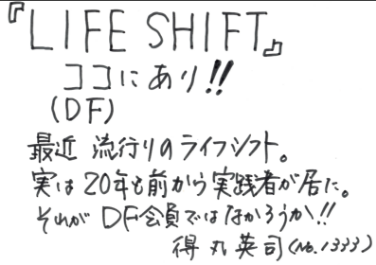 『LIFE SHIFT』
ココにあり!!
(DF)
最近 流行りのライフシフト。
実は20年も前から実践者が居た。
それが DF会員ではなかろうか!!
得丸英司(No.1333)